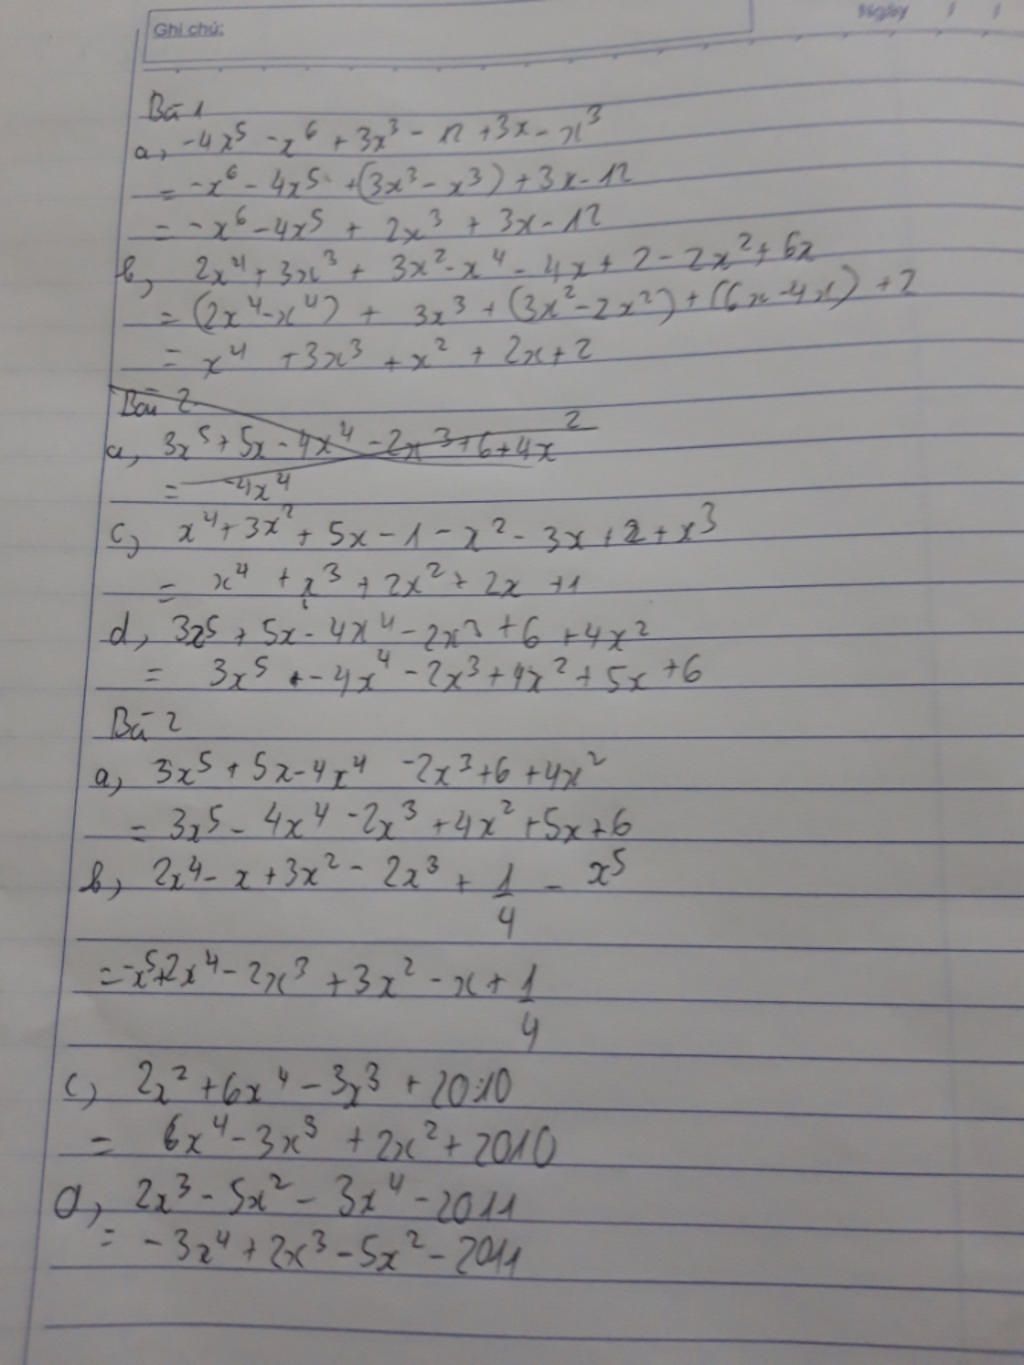 Ghi chú:
Ngày / /
Bài 1
a, -4x⁵ - x⁶ + 3x³ - 12 + 3x - x³
= -x⁶ - 4x⁵ + (3x³ - x³) + 3x - 12
= -x⁶ - 4x⁵ + 2x³ + 3x - 12
b, 2x⁴ + 3x³ + 3x² - x⁴ - 4x + 2 - 2x² + 6x
= (2x⁴ - x⁴) + 3x³ + (3x² - 2x²) + (6x - 4x) + 2
= x⁴ + 3x³ + x² + 2x + 2
Bài 2
a, 3x⁵ + 5x - 4x⁴ - 2x³ + 6 + 4x²
= -4x⁴
c, x⁴ + 3x² + 5x - 1 - x² - 3x + 2 + x³
= x⁴ + x³ + 2x² + 2x + 1
d, 3x⁵ + 5x - 4x⁴ - 2x³ + 6 + 4x²
= 3x⁵ + - 4x⁴ - 2x³ + 4x² + 5x + 6
Bài 2
a, 3x⁵ + 5x - 4x⁴ - 2x³ + 6 + 4x²
= 3x⁵ - 4x⁴ - 2x³ + 4x² + 5x + 6
b, 2x⁴ - x + 3x² - 2x³ + 1/4 - x⁵
= -x⁵ + 2x⁴ - 2x³ + 3x² - x + 1/4
c, 2x² + 6x⁴ - 3x³ + 2010
= 6x⁴ - 3x³ + 2x² + 2010
d, 2x³ - 5x² - 3x⁴ - 2011
= -3x⁴ + 2x³ - 5x² - 2011